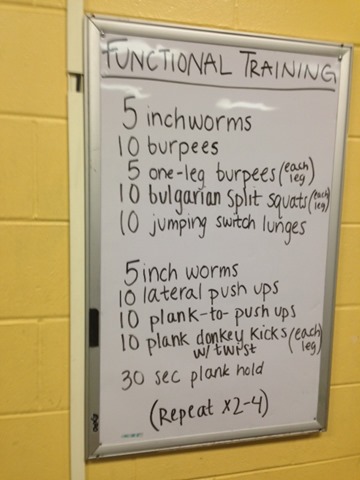 FUNCTIONAL TRAINING
5 inchworms
10 burpees
5 one-leg burpees (each leg)
10 bulgarian split squats (each leg)
10 jumping switch lunges
5 inch worms
10 lateral push ups
10 plank-to-push ups
10 plank donkey kicks (each leg)
w/ twist
30 sec plank hold
(Repeat x2-4)